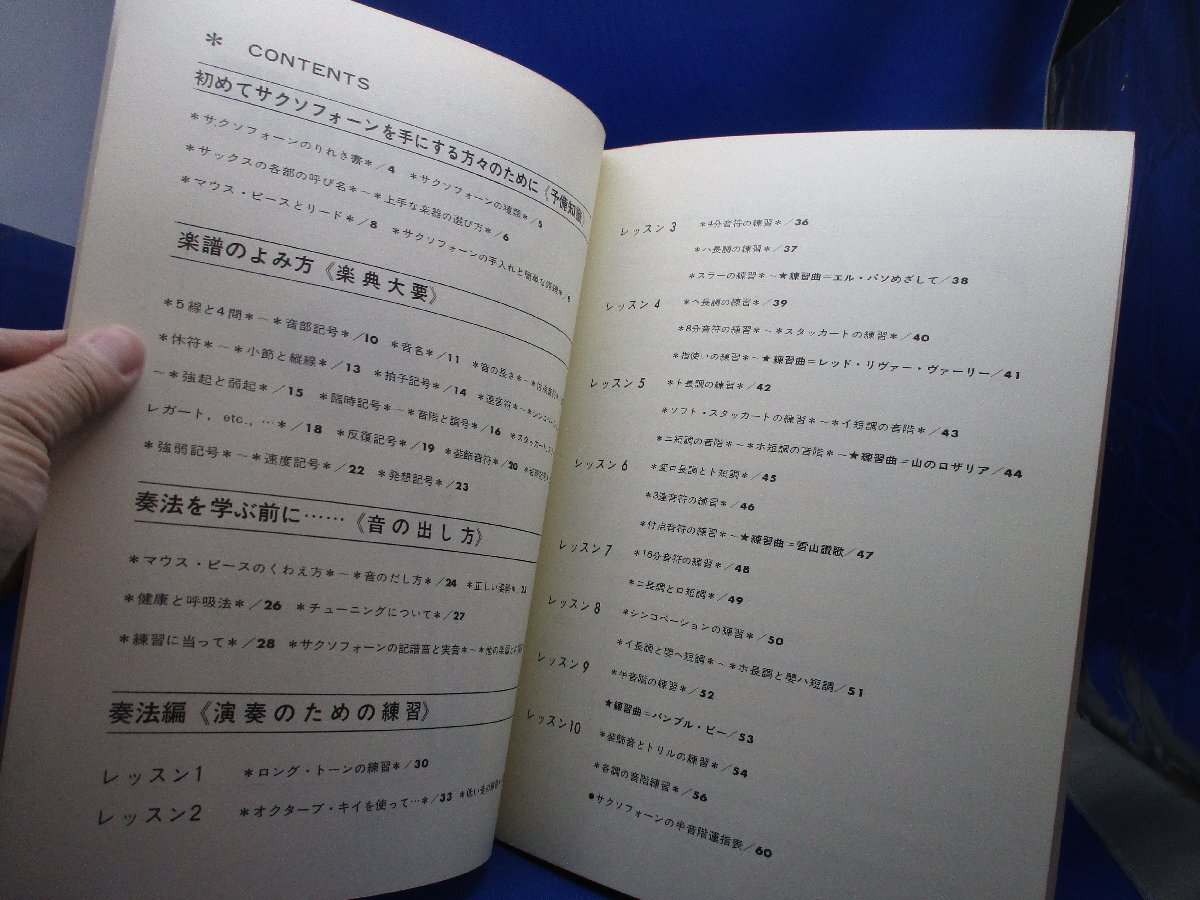 * CONTENTS
初めてサクソフォーンを手にする方々のために《予備知識》
*サクソフォーンのりれき書*/4 *サクソフォーンの種類*/5
*サックスの各部の呼び名*~*上手な楽器の選び方*/6
*マウス・ピースとリード*/8 *サクソフォーンの手入れと簡単な修理*/9
楽譜のよみ方《楽典大要》
*5線と4間*~*音部記号*/10 *音名*/11 *音の長さ*~
*休符*~*小節と縦線*/13 *拍子記号*/14 *連音符*~*シンコペーション
~*強起と弱起*/15 *臨時記号*~*音階と調号*/16 *スタッカート,
レガート, etc., …*/18 *反復記号*/19 *装飾音符*/20
*強弱記号*~*速度記号*/22 *発想記号*/23
奏法を学ぶ前に……《音の出し方》
*マウス・ピースのくわえ方*~*音のだし方*/24 *正しい姿勢*
*健康と呼吸法*/26 *チューニングについて*/27
*練習に当って*/28 *サクソフォーンの記譜音と実音*~*他の楽器
奏法編《演奏のための練習》
レッスン1 *ロング・トーンの練習*/30
レッスン2 *オクターブ・キイを使って…*/33 *低い音の練習
レッスン3 *4分音符の練習*/36
*ハ長調の練習*/37
*スラーの練習*~★練習曲=エル・パソめざして/38
レッスン4 *ヘ長調の練習*/39
*8分音符の練習*~*スタッカートの練習*/40
*指使いの練習*~★練習曲=レッド・リヴァー・ヴァーリー/41
レッスン5 *ト長調の練習*/42
*ソフト・スタッカートの練習*~*イ短調の音階*/43
*ニ短調の音階*~*ホ短調の音階*~★練習曲=山のロザリア/44
レッスン6 *変ロ長調とト短調*/45
*3連音符の練習*/46
*付点音符の練習*~★練習曲=雪山讃歌/47
レッスン7 *16分音符の練習*/48
*ニ長調とロ短調*/49
レッスン8 *シンコペーションの練習*/50
*イ長調と嬰ヘ短調*~*ホ長調と嬰ハ短調/51
レッスン9 *半音階の練習*/52
★練習曲=バンブル・ビー/53
レッスン10 *装飾音とトリルの練習*/54
*各調の音階練習*/56
●サクソフォーンの半音階運指表/60